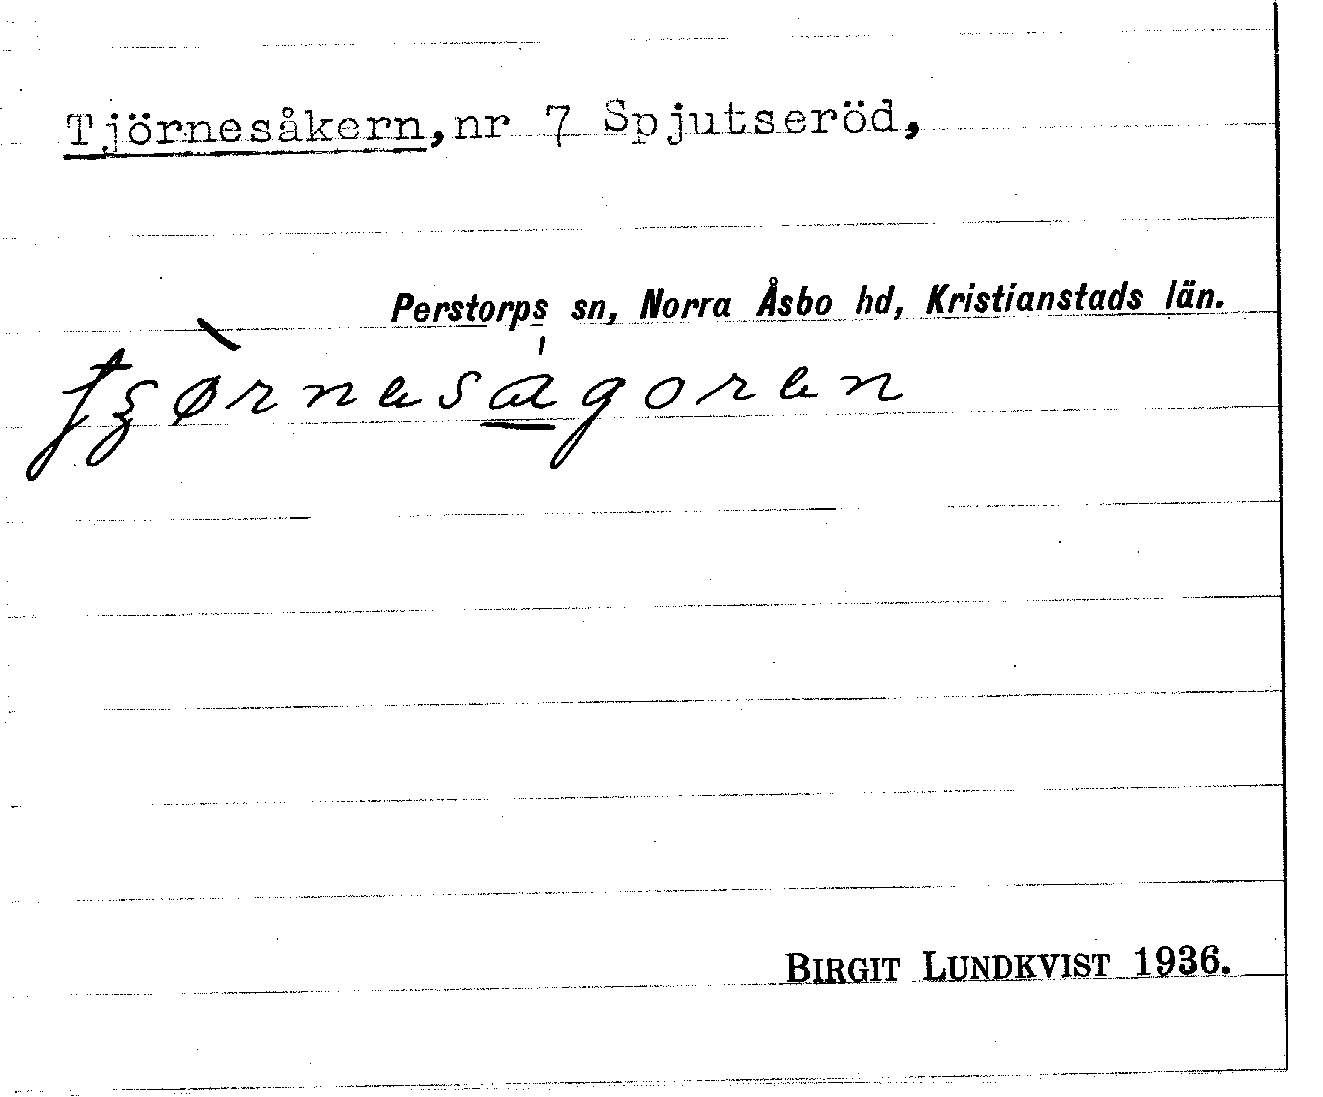 Tjörnesåkern, nr 7 Spjutseröd,
Perstorps sn, Norra Åsbo hd, Kristianstads län.
BIRGIT LUNDKVIST 1936.